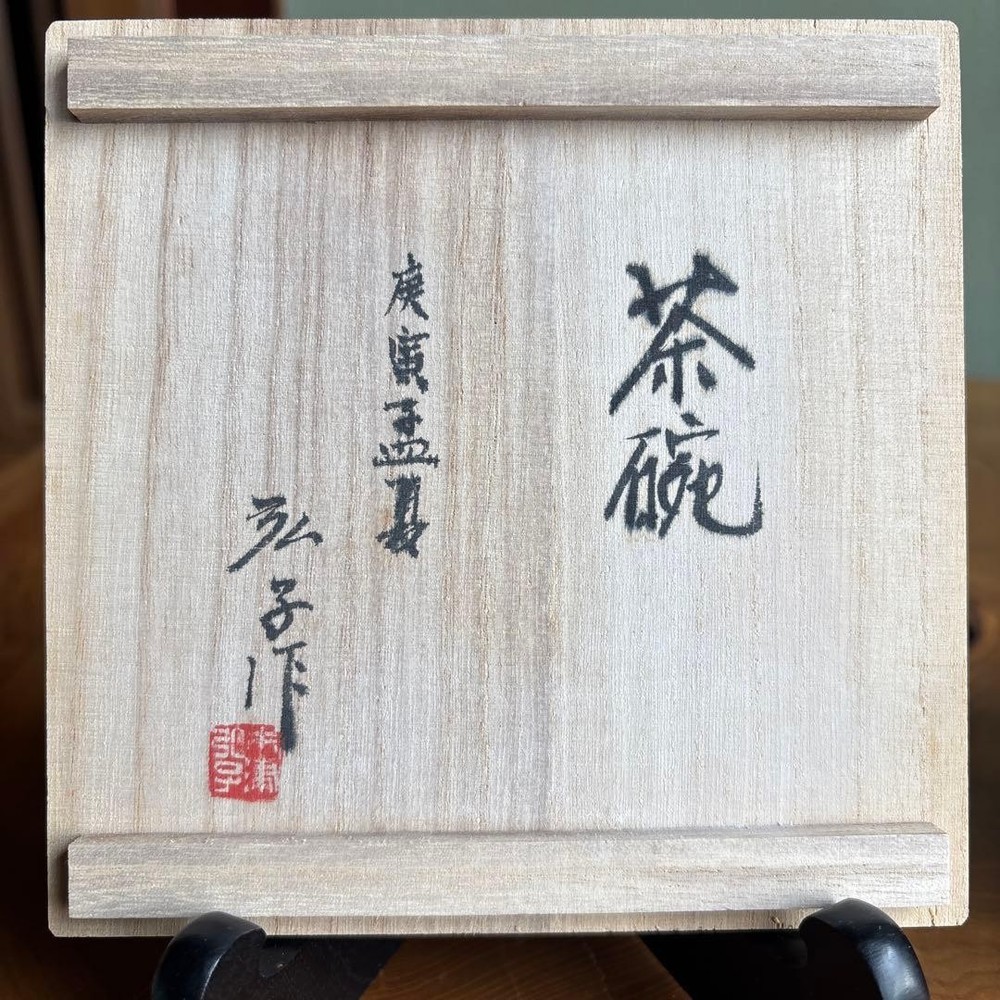 茶碗
庚寅孟夏
弘子作
弘子